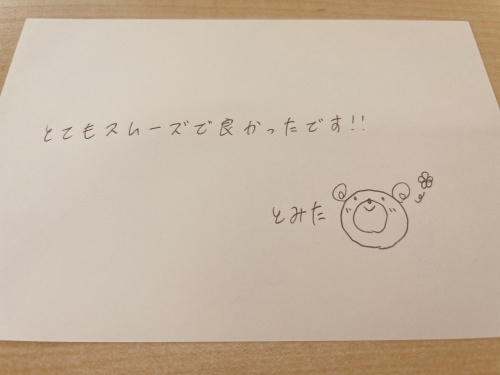 とてもスムーズで良かったです!!
とみた